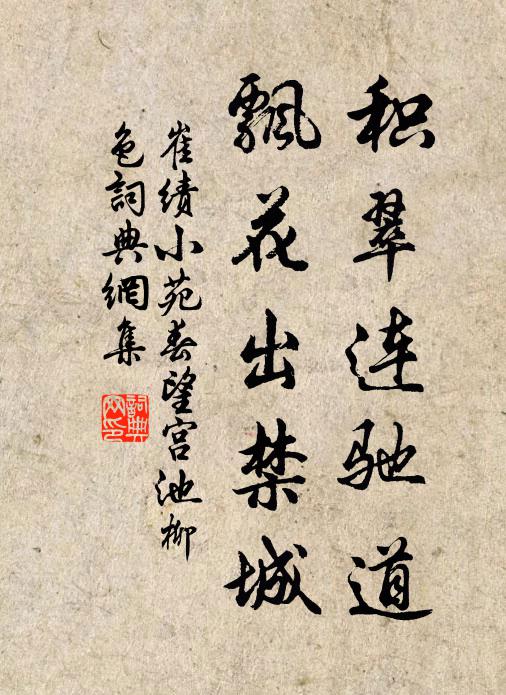 积翠连驰道
飘花出禁城
崔绩小苑春望宫池柳
色詞典網集
詞典
网印